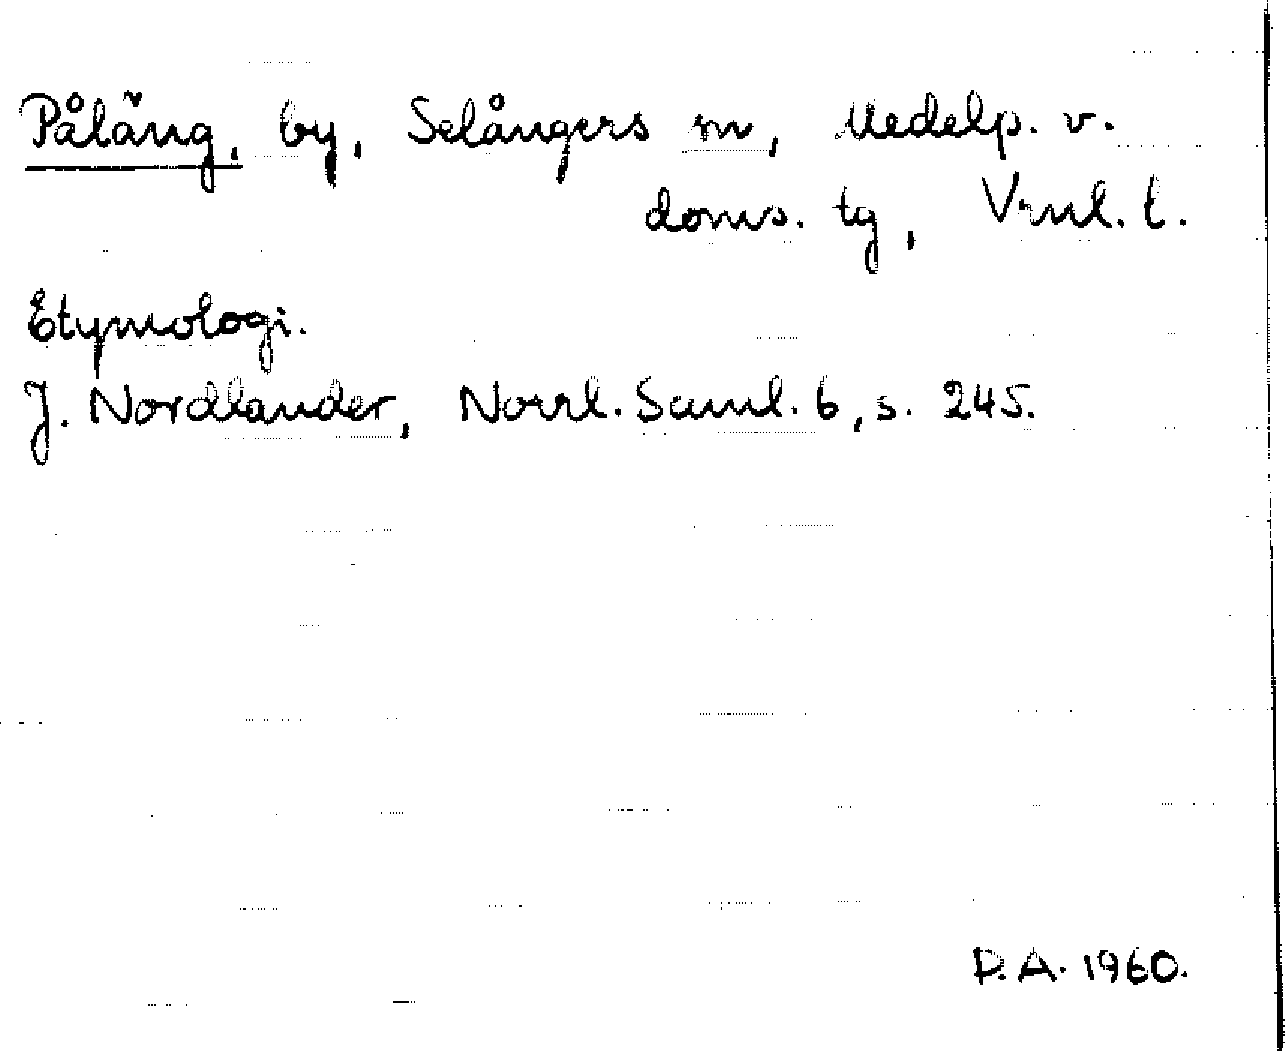 Påläng, by, Selångers sn, Medelp. v.
doms. tg, Vrnl. l.
Etymologi.
J. Nordlander, Norrl. Saml. 6, s. 245.
P.A. 1960.